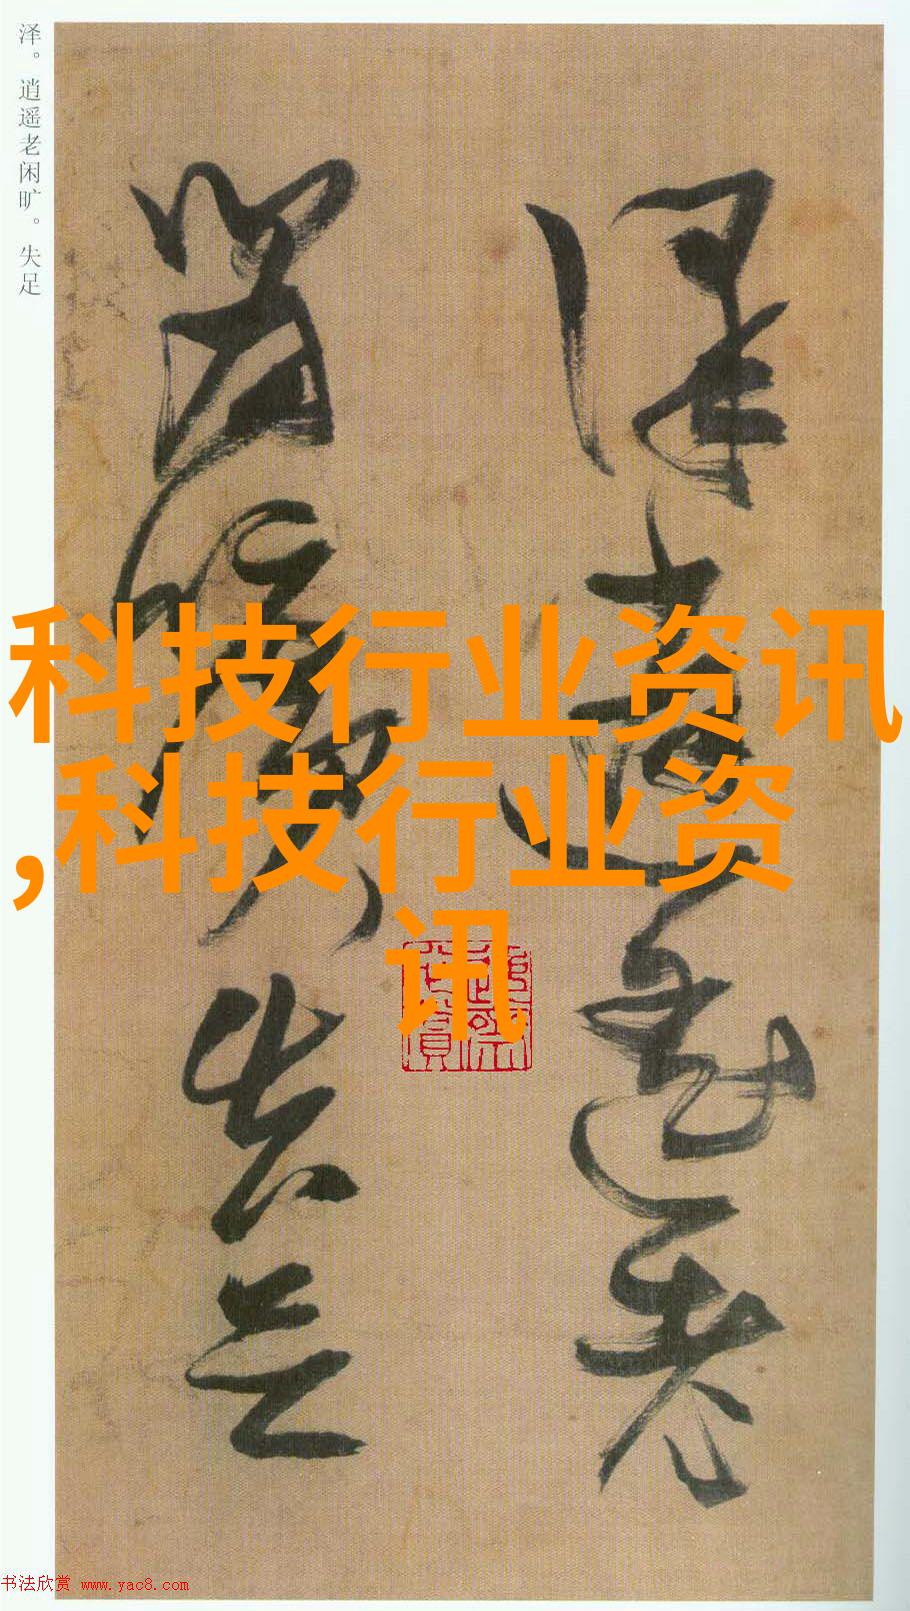 泽。逍遥老闲旷。失足
泽逍遥老
闲旷失足
科技行业资讯
,科技行业资
讯
书法欣赏 www.yac8.com